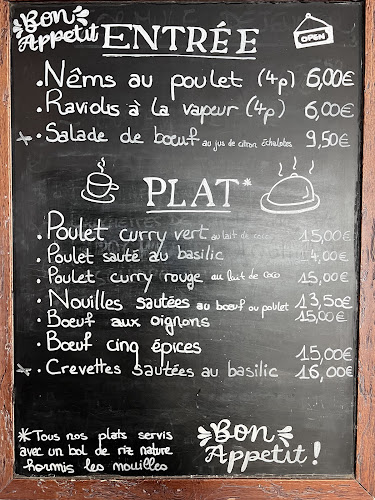 Bon
Appetit
ENTRÉE
OPEN
. Nêms au poulet (4p) 6,00€
. Raviolis à la vapeur (4p) 6,00€
. Salade de boeuf au jus de citron Echalotes 9,50€
PLAT*
. Poulet curry vert au lait de coco 15,00€
. Poulet sauté au basilic 14,00€
. Poulet curry rouge au lait de coco 15,00€
. Nouilles sautées au boeuf ou poulet 13,50€
. Boeuf aux oignons 15,00€
. Boeuf cinq épices 15,00€
. Crevettes sautées au basilic 16,00€
*Tous nos plats servis
avec un bol de riz nature
hormis les nouilles
Bon
Appetit!